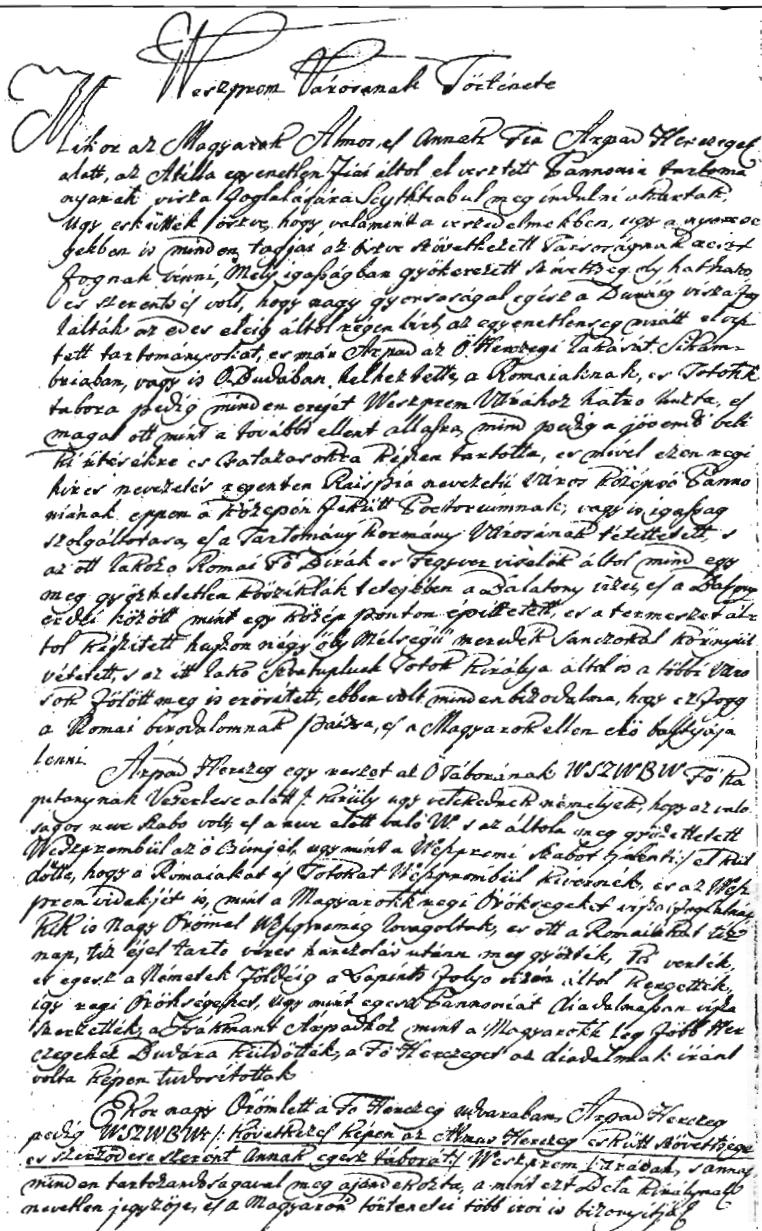 Weszprem Városának Története
Mikor az Magyarok Álmos, es Annak Fia Arpad Herczegek
alatt, az Atilla egyenetlen fiai által el vesztett Pannonia tartoma
nyanak viszsza foglalására Scythiabul meg indulni akartak,
ugy esküttek öszve, hogy valamint a veszedelmekben, ugy a nyeresé
gekben is minden tagjai az öszve szövetkezett Társaságnak részt
fognak venni, Mely igasságban gyökerezett szövetség oly hathatos
és szerentsés volt, hogy nagy gyorsaságal egész a Dunáig viszsza fog
lálták az edes eleik által régen birt, az egyenetlenség miátt el vesz
tett tartományokat, es már Arpad az Ő Herczegi lakását Sikam-
briaban, vagy is O Budában helheztette, a Romaiaknak, es Totokk
tabora pedig minden erejét Weszprem Várához hatra huzta, es
magát ott mint a további ellent allasra, mind pedig a jövendő beli
ki ütésekre es csatazasokra képen tartotta, es mivel ezen regi
hires nevezetes regenten nevezetü Város középső Panno
niának eppen a közepén feküdt Praetoriumnak, vagy is igasság
szolgáltatasra, es a Tartomány kormány Városának tétettetett, s
az ott lakozo Romai Fő Birák es Fegyver viselők által mind egy
meg győzhetetlen kösziklák tetejében a Balatony vizei, es a Bakony
erdei között mint egy közép ponton epittetett, es a termeszet ál-
tol készitett huszon négy öly Mélségü meredek Sanczokal környül
vétetett, s az itt lakó Svatupluk Totok Királya által is a többi Váro
sok fölött meg is erösitett, ebben volt minden bizodalma, hogy ez fogg
a Romai birodalomnak paizsa, es a Magyarok ellen erő bástyája
lenni.
Arpad Herczeg egy reszet az Ő Táborának WSZWBW Fő Ka
pitanynak Vezerlese alatt /: kirüly ugy velekednek némelyek, hogy az valo
ságos neve Szabo volt, es a neve elött való W s az általa meg győzettetett
Weszprembül az ő ugy mint a Weszpremi Szabot jelenti :/ el kül
dötte, hogy a Rómaiakat es Totokat Weszprembül kivernék, es az Wesz
prem videkjét is, mint a Magyarokk regi Örökségeket viszsza foglalnák
Kik is Nagy Örömel Weszpremig lovagoltak, es ott a Romaiakkal tiz
nap, tiz éjel tarto véres harczolás utánn meg győzték, ki verték,
es egesz a Németek Földéig a Lapints folyo vizén által kergették,
igy regi Örökségeket, ugy mint egesz Pannoniat diadalmasan viszsza
szerzették, a Prédákat Arpadhoz mint a Magyarokk leg főbb Her
czegehez Budára küldötték, a Fő Herczeget az diadalmak iránt
volta képen tudositottak.
Ekor nagy Öröm lett a Fő Herczeg udvaraban, Arpad Herczeg
pedig WSZWBWt /: következes képen az Almus Herczeg eskütt szövettsége
es szerzödese szerent Annak egesz táborat :/ Weszprem Várában, s annak
minden tartozandoságaval meg ajándékozta, a mint ezt Bela királynak
nevetlen jegyzöje, és a Magyarok történetei több iroi is bizonyitják